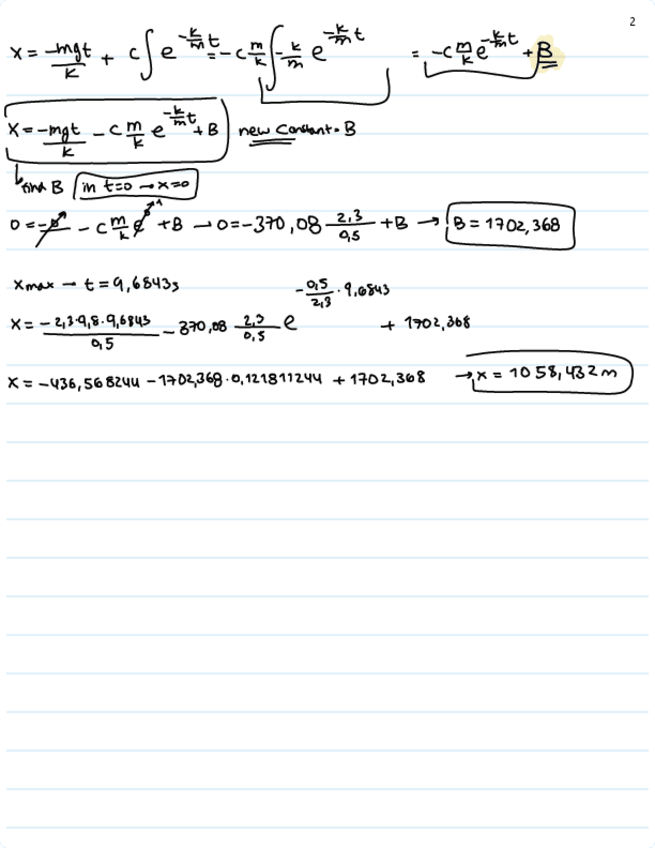 2
x = -mgt/k + c∫e^(-k/m t) = -c m/k ∫ -k/m e^(-k/m t) = -c m/k e^(-k/m t) + B
x = -mgt/k - c m/k e^(-k/m t) + B new constant = B
find B in t=0 → x=0
0 = -0 - c m/k e^0 1 + B → 0 = -370,08 2,3/0,5 + B → B = 1702,368
xmax → t = 9,6843s
x = -2,3·9,8·9,6843/0,5 - 370,08 2,3/0,5 e^(-0,5/2,3 · 9,6843) + 1702,368
x = -436,568244 - 1702,368·0,121811244 + 1702,368 → x = 1058,432m